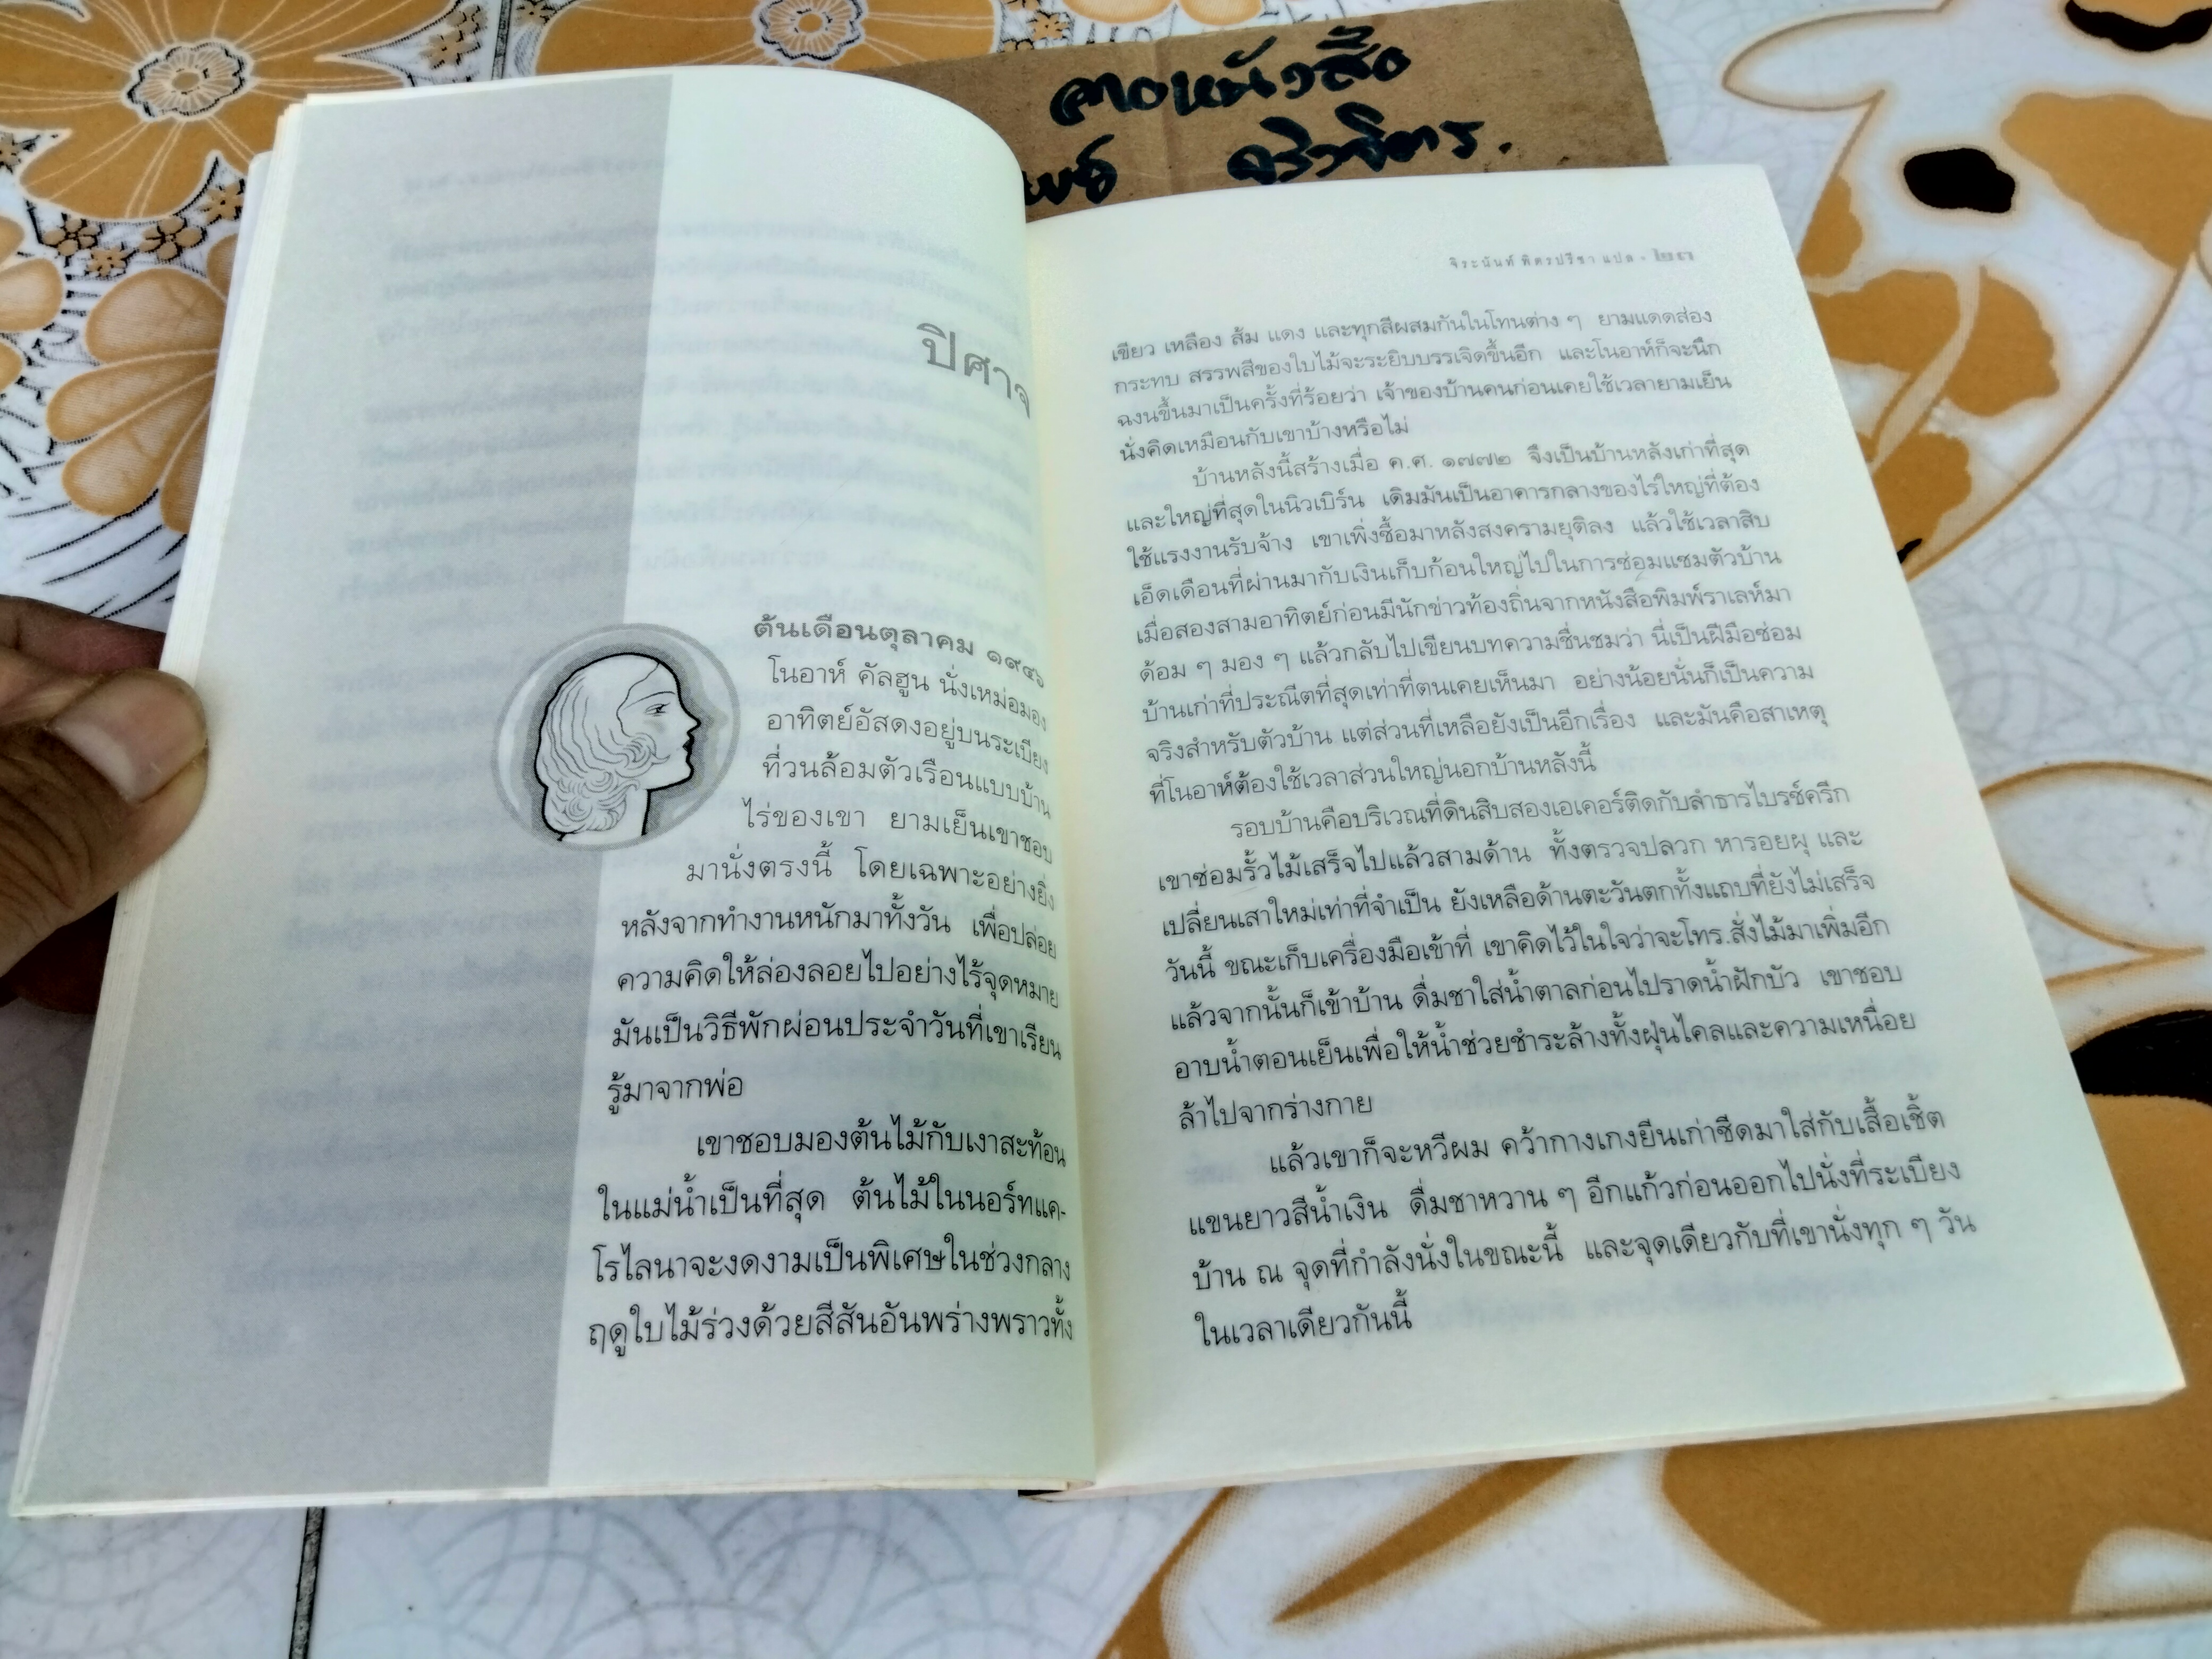 ปิศาจ
ต้นเดือนตุลาคม ๑๙๔๖
โนอาห์ คัลฮูน นั่งเหม่อมอง
อาทิตย์อัสดงอยู่บนระเบียง
ที่วนล้อมตัวเรือนแบบบ้าน
ไร่ของเขา ยามเย็นเขาชอบ
มานั่งตรงนี้ โดยเฉพาะอย่างยิ่ง
หลังจากทำงานหนักมาทั้งวัน เพื่อปล่อย
ความคิดให้ล่องลอยไปอย่างไร้จุดหมาย
มันเป็นวิธีพักผ่อนประจำวันที่เขาเรียน
รู้มาจากพ่อ
เขาชอบมองต้นไม้กับเงาสะท้อน
ในแม่น้ำเป็นที่สุด ต้นไม้ในนอร์ทแค-
โรไลนาจะงดงามเป็นพิเศษในช่วงกลาง
ฤดูใบไม้ร่วงด้วยสีสันอันพร่างพราวทั้ง
จิระนันท์ พิตรปรีชา แปล -
เขียว เหลือง ส้ม แดง และทุกสีผสมกันในโทนต่าง ๆ ยามแดดส่อง
กระทบ สรรพสีของใบไม้จะระยิบบรรเจิดขึ้นอีก และโนอาห์ก็จะนึก
ฉงนขึ้นมาเป็นครั้งที่ร้อยว่า เจ้าของบ้านคนก่อนเคยใช้เวลายามเย็น
นั่งคิดเหมือนกับเขาบ้างหรือไม่
บ้านหลังนี้สร้างเมื่อ ค.ศ. ๑๗๗๒ จึงเป็นบ้านหลังเก่าที่สุด
และใหญ่ที่สุดในนิวเบิร์น เดิมมันเป็นอาคารกลางของไร่ใหญ่ที่ต้อง
ใช้แรงงานรับจ้าง เขาเพิ่งซื้อมาหลังสงครามยุติลง แล้วใช้เวลาสิบ
เอ็ดเดือนที่ผ่านมากับเงินเก็บก้อนใหญ่ไปในการซ่อมแซมตัวบ้าน
เมื่อสองสามอาทิตย์ก่อนมีนักข่าวท้องถิ่นจากหนังสือพิมพ์ราเลห์มา
ด้อม ๆ มอง ๆ แล้วกลับไปเขียนบทความชื่นชมว่า นี่เป็นฝีมือซ่อม
บ้านเก่าที่ประณีตที่สุดเท่าที่ตนเคยเห็นมา อย่างน้อยนั่นก็เป็นความ
จริงสำหรับตัวบ้าน แต่ส่วนที่เหลือยังเป็นอีกเรื่อง และมันคือสาเหตุ
ที่โนอาห์ต้องใช้เวลาส่วนใหญ่นอกบ้านหลังนี้
รอบบ้านคือบริเวณที่ดินสิบสองเอเคอร์ติดกับลำธารไบรซ์ครีก
เขาซ่อมรั้วไม้เสร็จไปแล้วสามด้าน ทั้งตรวจปลวก หารอยผุ และ
เปลี่ยนเสาใหม่เท่าที่จำเป็น ยังเหลือด้านตะวันตกทั้งแถบที่ยังไม่เสร็จ
วันนี้ ขณะเก็บเครื่องมือเข้าที่ เขาคิดไว้ในใจว่าจะโทร.สั่งไม้มาเพิ่มอีก
แล้วจากนั้นก็เข้าบ้าน ดื่มชาใส่น้ำตาลก่อนไปราดน้ำฝักบัว เขาชอบ
อาบน้ำตอนเย็นเพื่อให้น้ำช่วยชำระล้างทั้งฝุ่นไคลและความเหนื่อย
ล้าไปจากร่างกาย
แล้วเขาก็จะหวีผม คว้ากางเกงยีนเก่าซีดมาใส่กับเสื้อเชิ้ต
แขนยาวสีน้ำเงิน ดื่มชาหวาน ๆ อีกแก้วก่อนออกไปนั่งที่ระเบียง
บ้าน ณ จุดที่กำลังนั่งในขณะนี้ และจุดเดียวกับที่เขานั่งทุก ๆ วัน
ในเวลาเดียวกันนี้